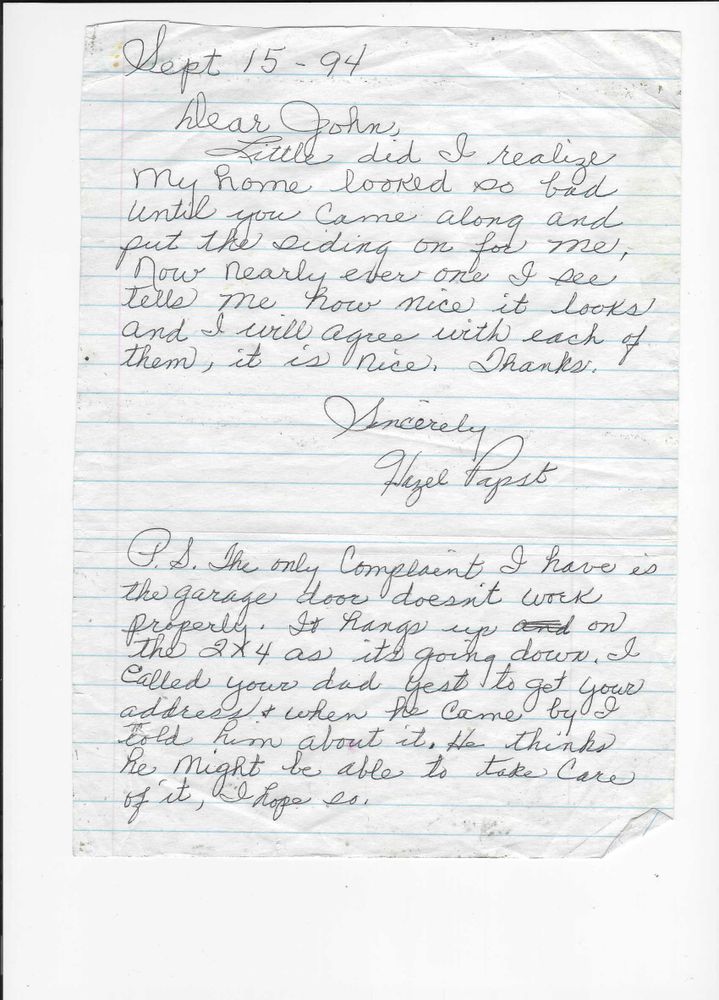 Sept 15 - 94
Dear John,
Little did I realize
my home looked so bad
until you came along and
put the siding on for me,
Now nearly ever one I see
tells me how nice it looks
and I will agree with each of
them, it is nice. Thanks.
Sincerely
Hazel Papst
P.S. The only Complaint I have is
the garage door doesn't work
properly. It hangs up and on
the 2x4 as its going down. I
called your dad yest to get your
address & when he came by I
told him about it. He thinks
he might be able to take care
of it, I hope so.